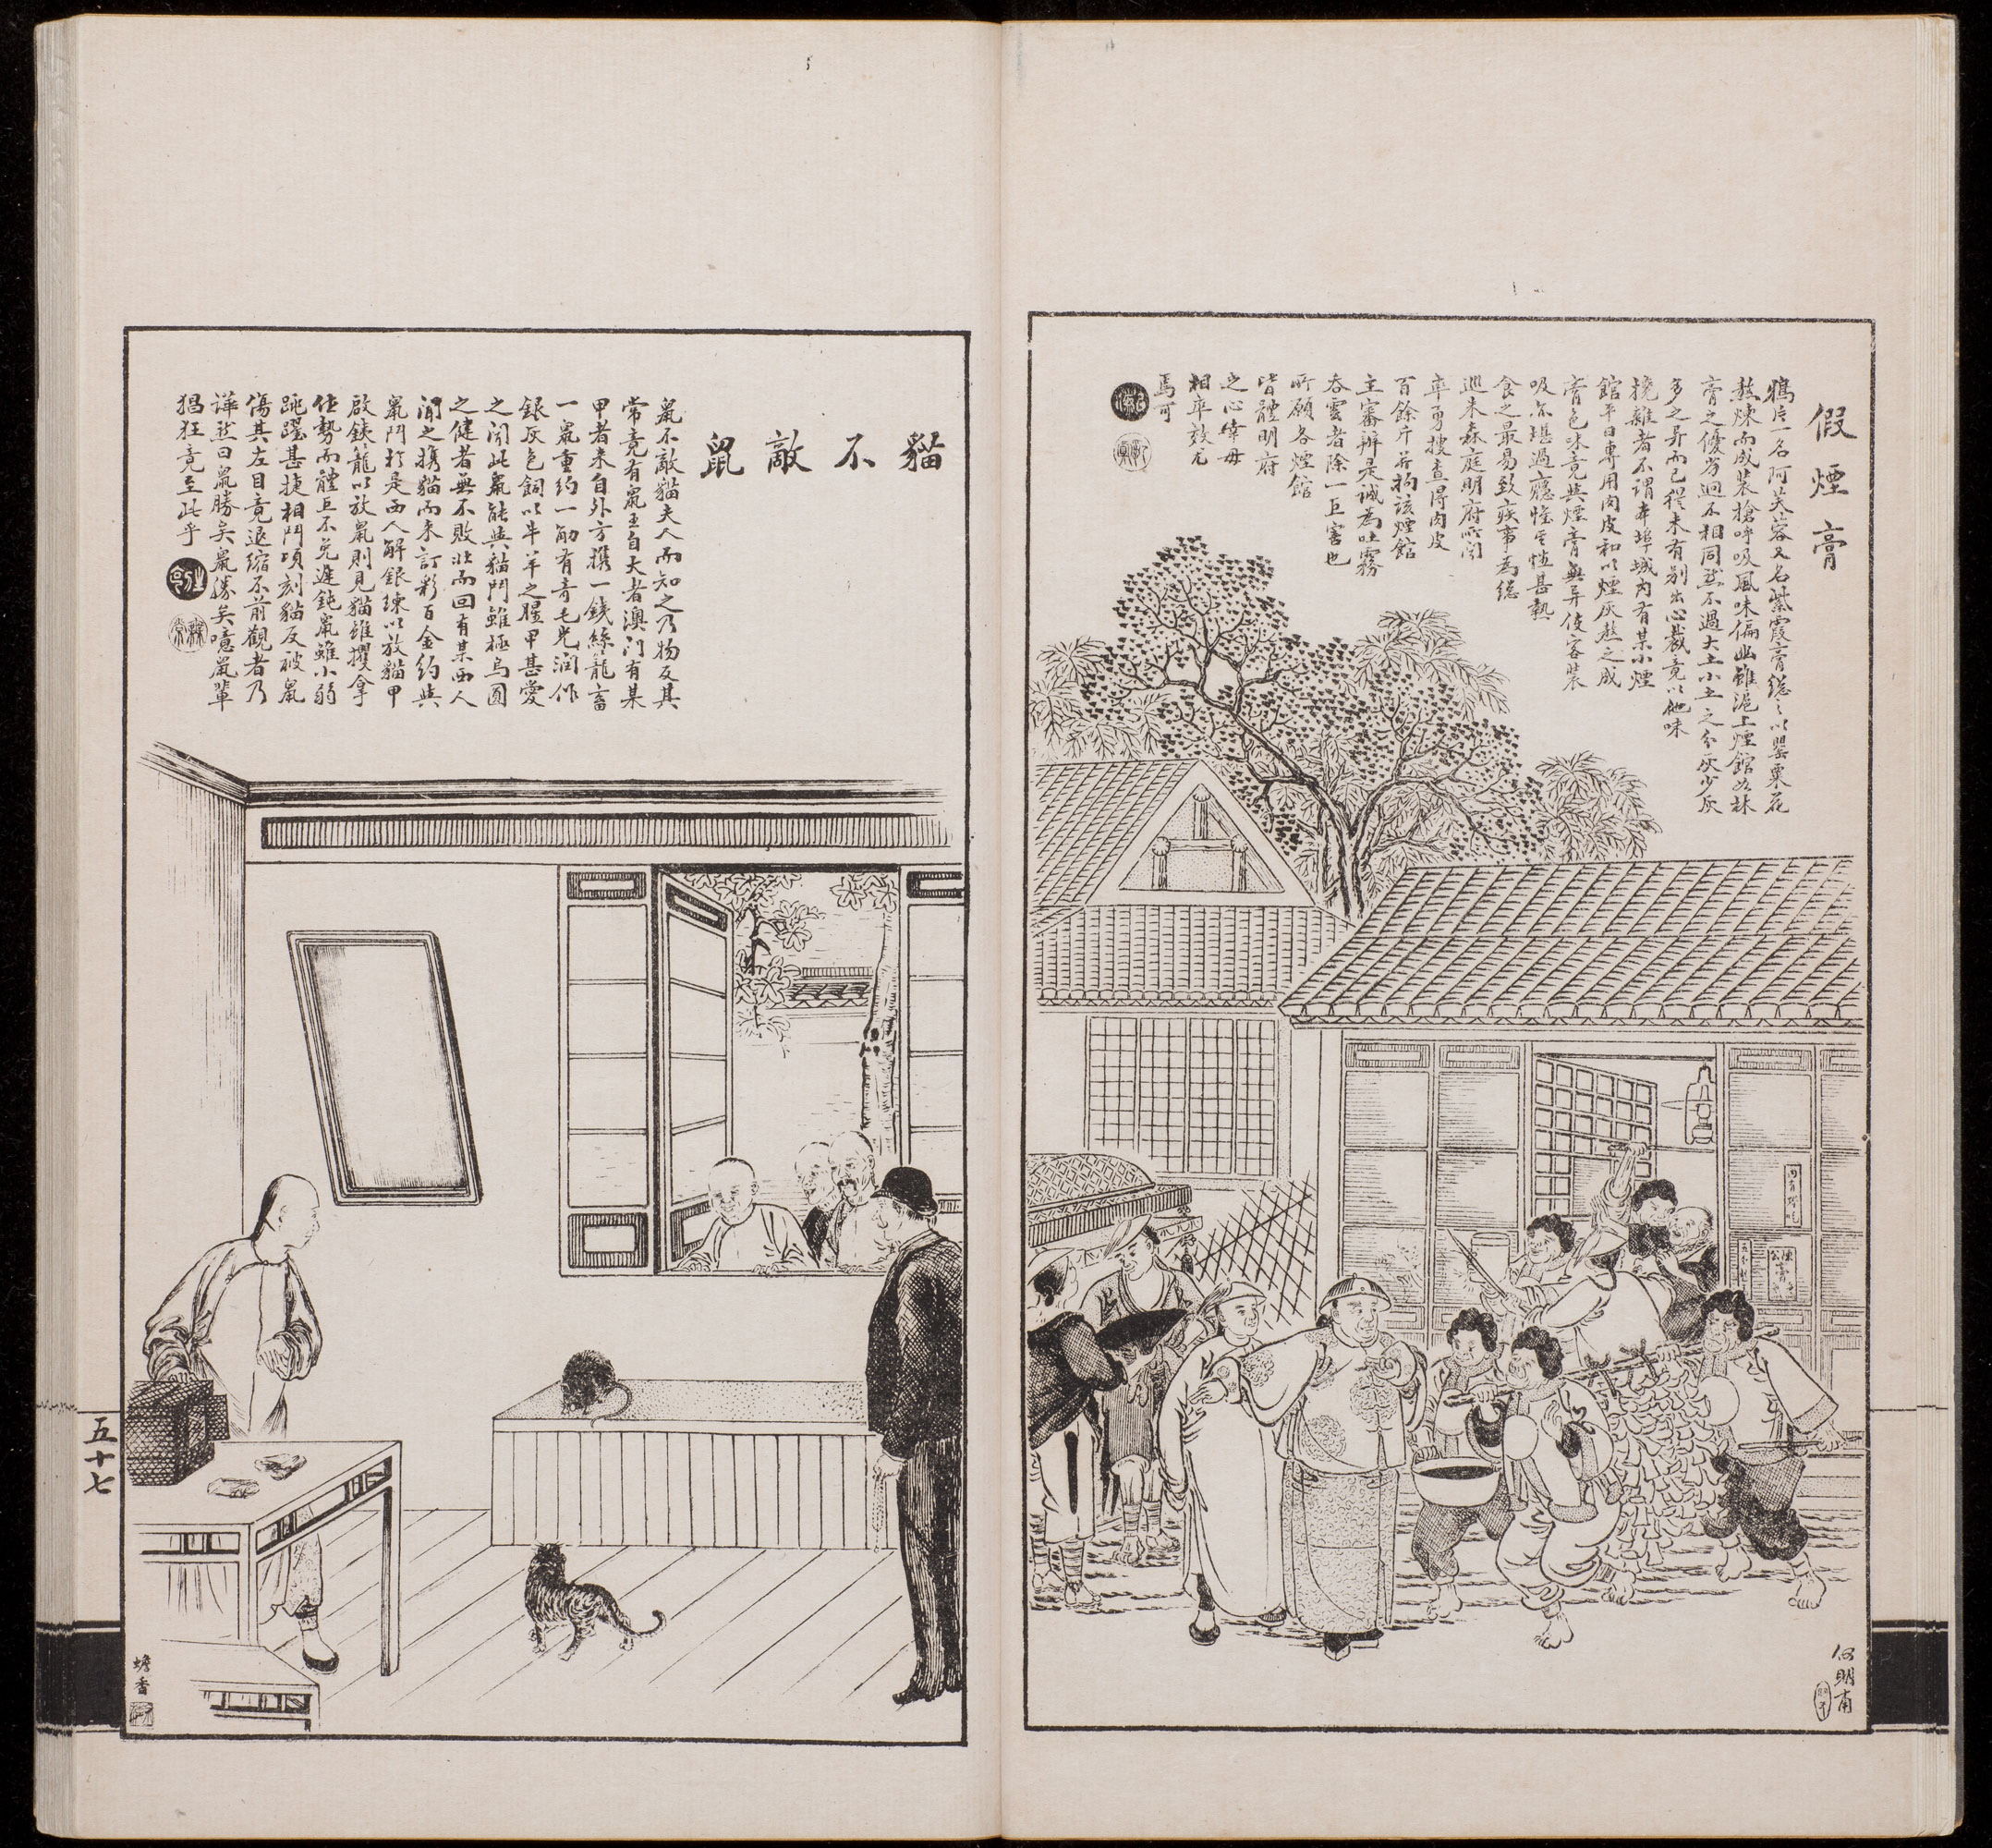 假煙膏
鴉片一名阿芙蓉又名紫霞膏總之以罌粟花
熬煉而成裝搶呼吸風味偏幽雖滬上煙館如林
膏之優劣迥不相同然不過大土小土之分灰少灰
多之异而已從未有别出心裁竟以他味
撓雜者不謂本埠城内有某小煙
館平日專用肉皮和以煙灰熬之成
膏色味竟與煙膏無异使客裝
吸亦堪過癮惟生性甚熱
食之最易致疾事爲總
巡朱森庭明府所聞
率勇搜查得肉皮
百餘斤并拘該煙館
主審辦是誠爲吐霧
吞雲者除一巨害也
所願各煙館
皆體明府
之心幸毋
相率效尤
焉可
何明甫
貓不敵鼠
鼠不敵貓夫人而知之乃物反其
常竟有鼠王自大者澳门有某
甲者來自外方携一鐵絲籠畜
一鼠重約一觔有奇毛光润作
銀灰色飼以牛羊之腥甲甚愛
之聞此鼠能與貓鬥雖極烏圓
之健者無不敗北而回有某西人
聞之携貓而來訂彩百金約與
鼠鬥於是西人解銀練以放貓甲
啟鐵籠以放鼠則見貓雖攫拿
作勢而體巨不免遲鈍鼠雖小弱
跳躍甚捷相鬥頃刻貓反被鼠
傷其左目竟退縮不前觀者乃
譁然曰鼠勝矣鼠勝矣噫鼠輩
猖狂竟至此乎
蟾香
五十七